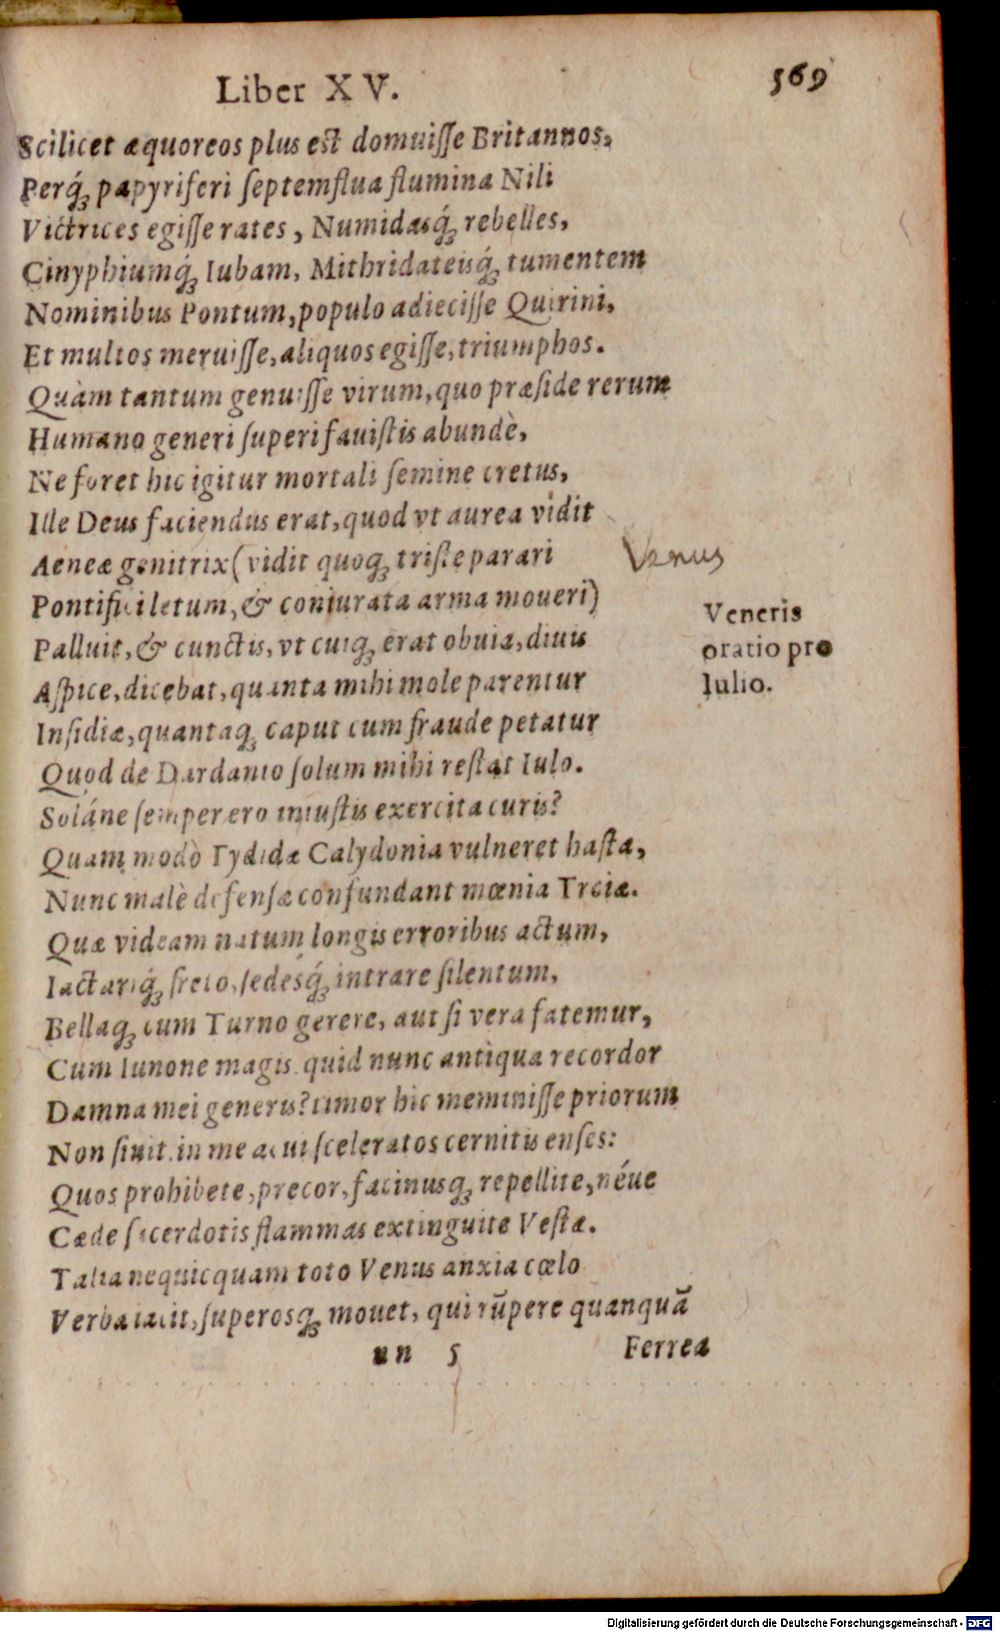 Liber XV. 569
Scilicet æquoreos plus est domuiſſe Britannos,
Perq́ꝫ papyriferi ſeptemflua flumina Nili
Victrices egiſſe rates, Numidasq́ꝫ rebelles,
Cinyphiumq́ꝫ Iubam, Mithridateisq́ꝫ tumentem
Nominibus Pontum, populo adieciſſe Quirini,
Et multos meruiſſe, aliquos egiſſe, triumphos.
Quàm tantum genuiſſe virum, quo præſide rerum
Humano generi ſuperi fauiſtis abundè,
Ne foret hic igitur mortali ſemine cretus,
Ille Deus faciendus erat, quod vt aurea vidit
Aeneæ genitrix (vidit quoqꝫ triſte parari
Venus
Pontifici letum, & coniurata arma moueri)
Palluit, & cunctis, vt cuiqꝫ erat obuia, diuis
Aſpice, dicebat, quanta mihi mole parentur
Veneris
oratio pro
Iulio.
Inſidiæ, quantaqꝫ caput cum fraude petatur
Quod de Dardanio ſolum mihi reſtat Iulo.
Soláne ſemper ero iniuſtis exercita curis?
Quam modò Tydidæ Calydonia vulneret haſta,
Nunc malè defenſæ confundant mœnia Troiæ.
Quæ videam natum longis erroribus actum,
Iactariq́ꝫ freto, ſedesq́ꝫ intrare ſilentum,
Bellaqꝫ cum Turno gerere, aut ſi vera fatemur,
Cum Iunone magis. quid nunc antiqua recordor
Damna mei generis? timor hic meminiſſe priorum
Non ſinit. in me acui ſceleratos cernitis enſes:
Quos prohibete, precor, facinusqꝫ repellite, néue
Cæde ſacerdotis flammas extinguite Veſtæ.
Talia nequicquam toto Venus anxia cœlo
Verba iacit, ſuperosqꝫ mouet, qui rūpere quanquã
nn 5 Ferrea
Digitalisierung gefördert durch die Deutsche Forschungsgemeinschaft - DFG